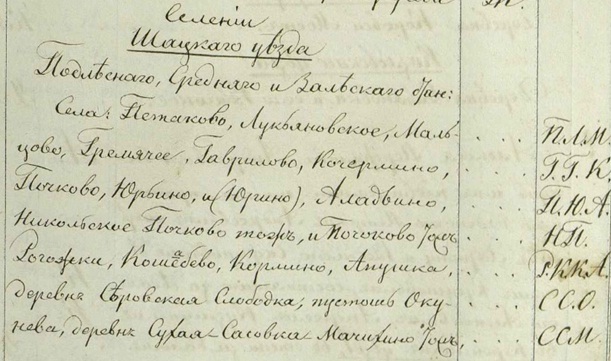 Селенiи
Шацкаго уѣзда
Подлѣснаго, Средняго и Залѣскаго стан:
Села: Петаково, Лукьяновское, Маль- П.Л.М.
цово, Гремячее, Гаврилово, Кочермино, Г.Г.К.
Почково, Юрьино, и (Югино), Аладьино, П.Ю.А.
Никольское Почково тожъ, и Почоково тожъ Н.П.
Рогожки, Кошабѣево, Кормино, Анушка, Р.К.К.А.
деревнѣ Сѣровская Слободка, пустошь Оку С.С.О.
нева, деревнѣ Сухая Сасовка Мачихино тожъ, С.С.М.